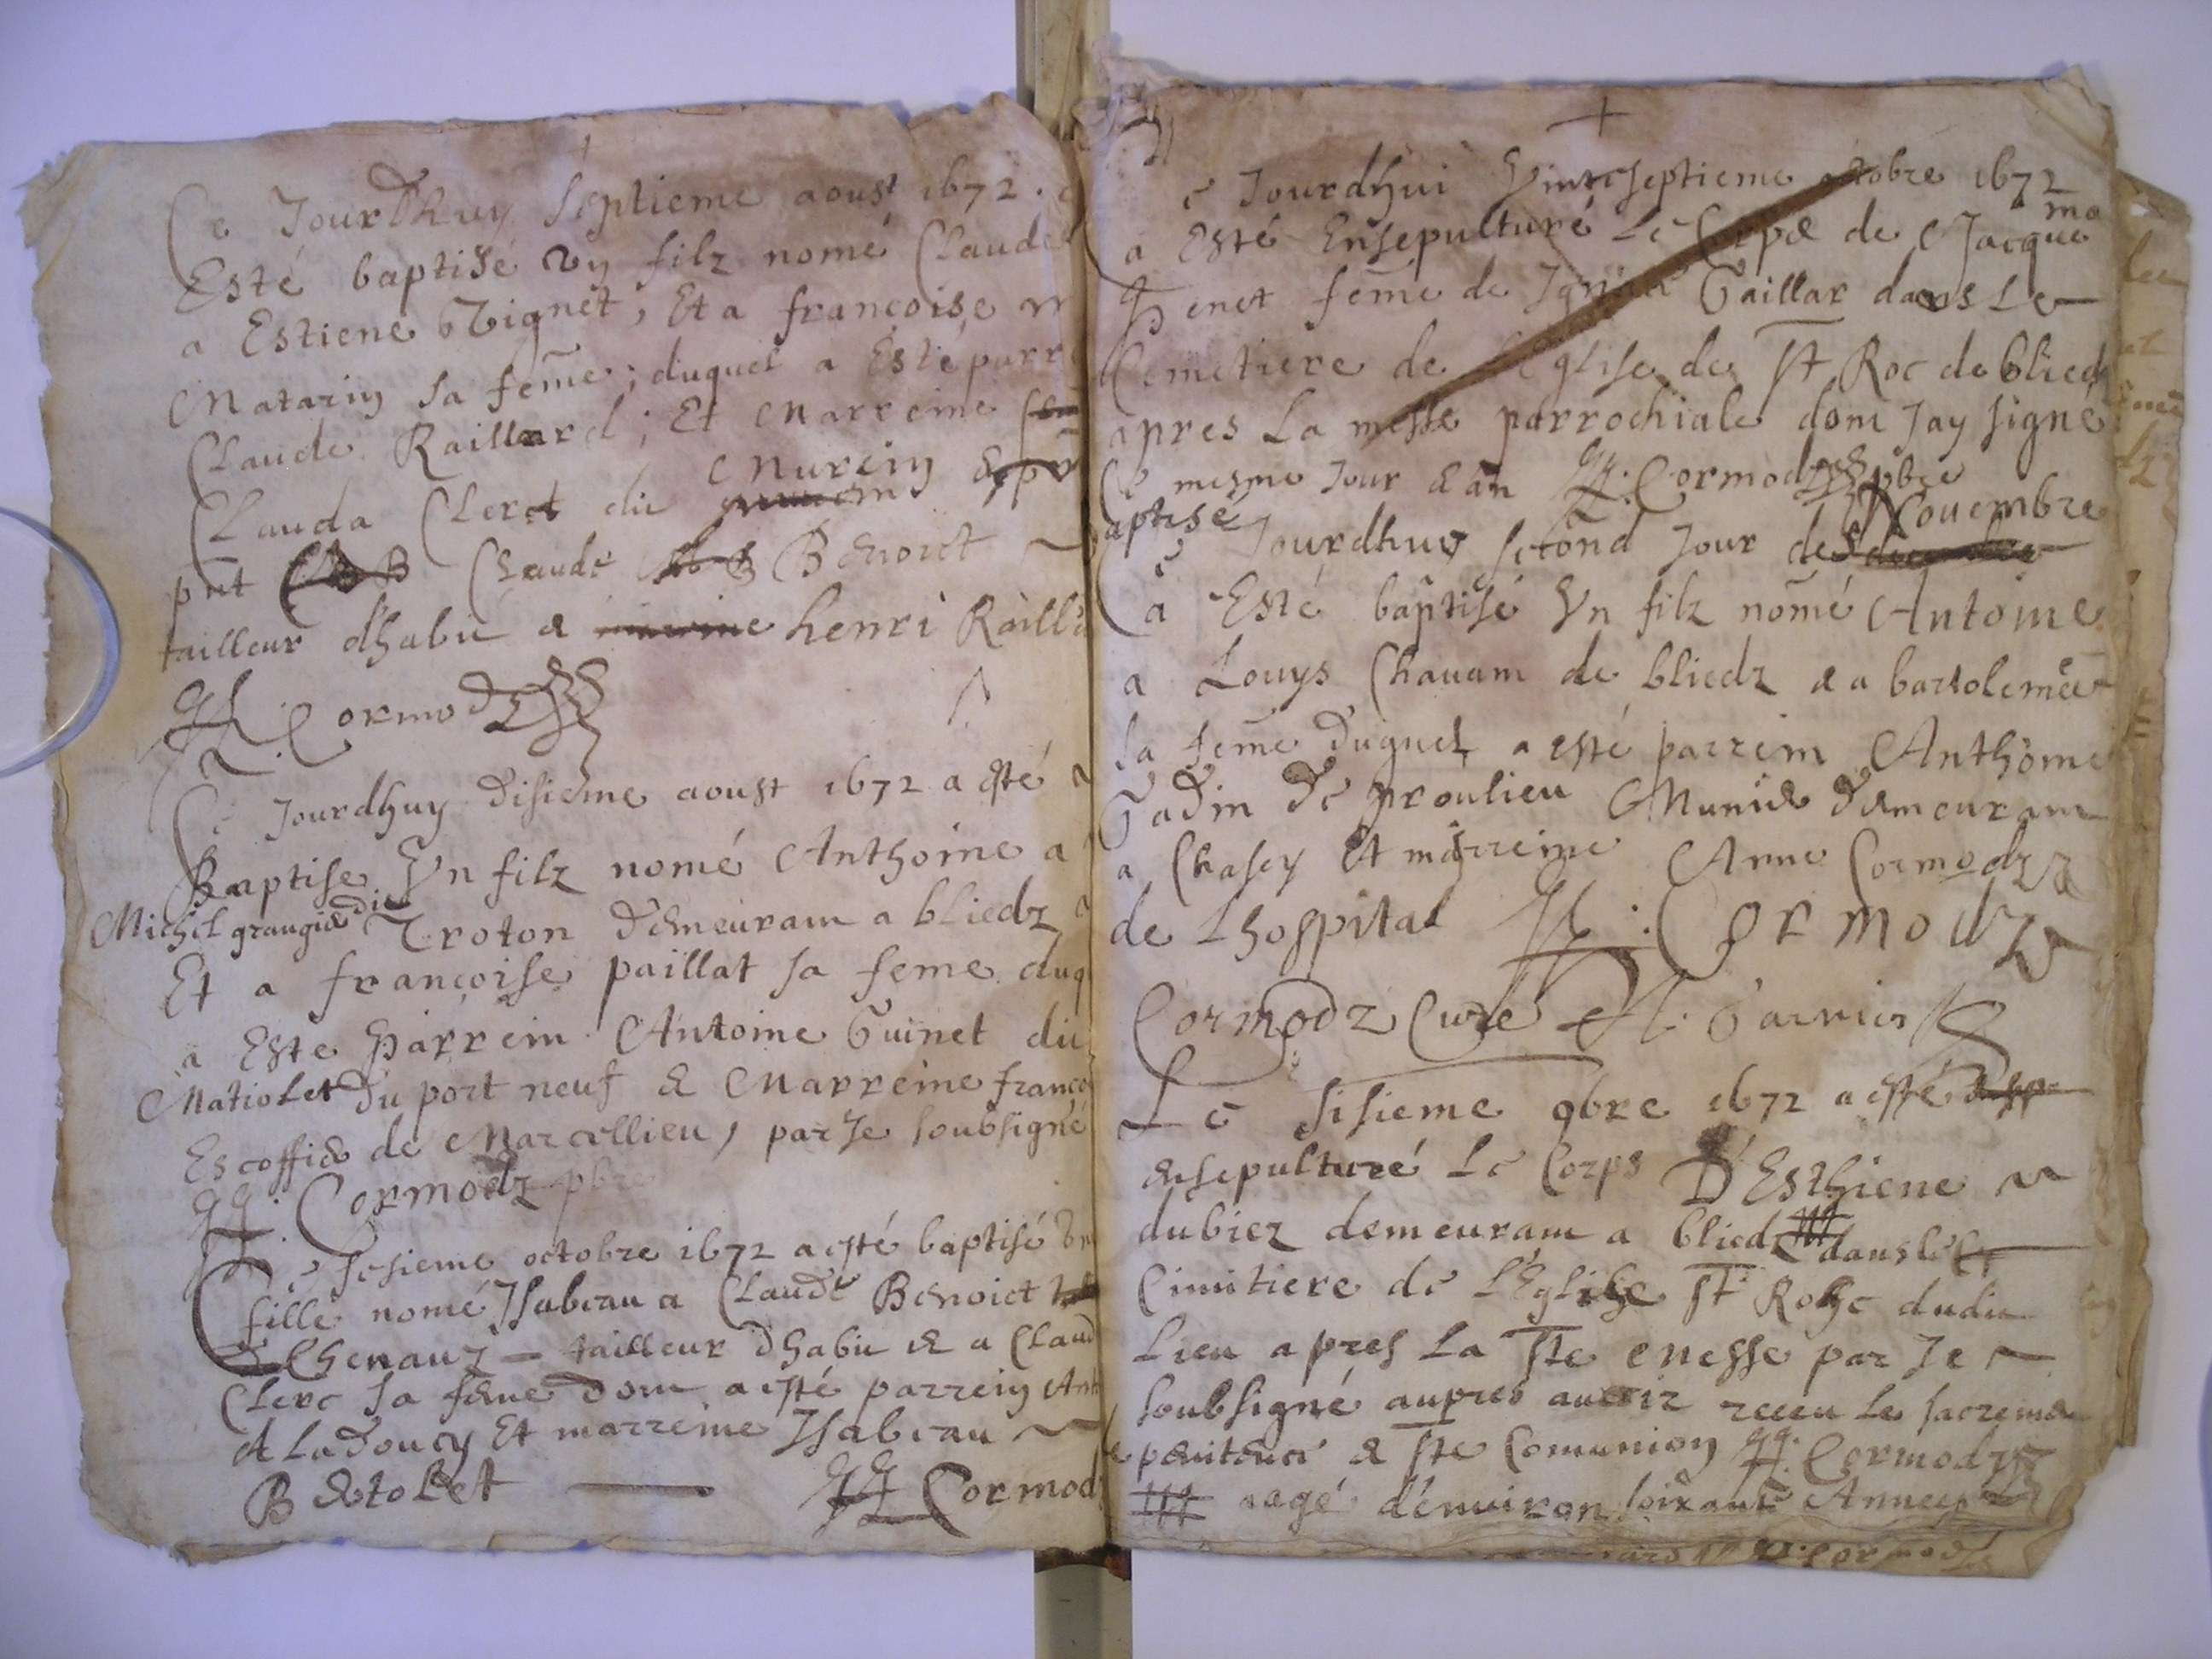 Ce Jourdhuy septieme aoust 1672. a
Esté baptisé vn filz nomé Claude
a Estiene Vignet; Et a françoise
Matarin sa feme; duquel a Esté parr
Claude Raillard; Et Marreine
Clauda Clerct dit Murcin &
pnt Claude Benoict
tailleur dhabit & henri Railla
Cormodz
Ce Jourdhuy disieme aoust 1672 a esté
Baptise Vn filz nomé Anthoine a
Michel grangié dit Troton demeurant a bliedz
Et a françoise paillat sa feme duq
a Este Parrein Antoine Guinet dit
Matiolet du port neuf & Marreine franço
Escoffié de Marcellieu, par Je soubsigné
Cormodz pbre
Ce sesieme octobre 1672 a esté baptisé Vn
fille nomé Isabeau a Claude Benoict
Chenauz tailleur dhabit & a Claud
Clerc sa feme dont a esté parrein Ant
de Ladoucy Et marreine Isabeau
Betolet Cormod
Ce Jourdhui Vintseptieme octobre 1672
a Esté Ensepulturé Le Corps de Jacquema
Penet feme de Gaillar dans Le
Cemetiere de L'Eglise de St Roc de bliedz
apres La messe parrochiale dont Jay signé
Ce mesme Jour & an Cormodz pbre
aptisé
Ce Jourdhuy second Jour de Nouembre
a Esté baptisé Vn filz nomé Antoine
a Louys Chauant de bliedz & a bartolemée
sa feme duquel a esté parrein Anthoine
Gadin de proulieu Munié demeurant
a Chasey Et marreine Anne Cormodz
de Lhospital Cormodz
Cormodz Curé Garnier
Le sisieme 9bre 1672 a esté
ensepulturé Le Corps D'Esthiene
dubiez demeurant a bliedz dans le
Cimitiere de L'Eglise St Roch dudit
Lieu apres La Ste messe par Je
soubsigné aupres auoir receu Le sacrement
penitence & Ste Comunion Cormodz
aagé d'enuiron soixante Annees